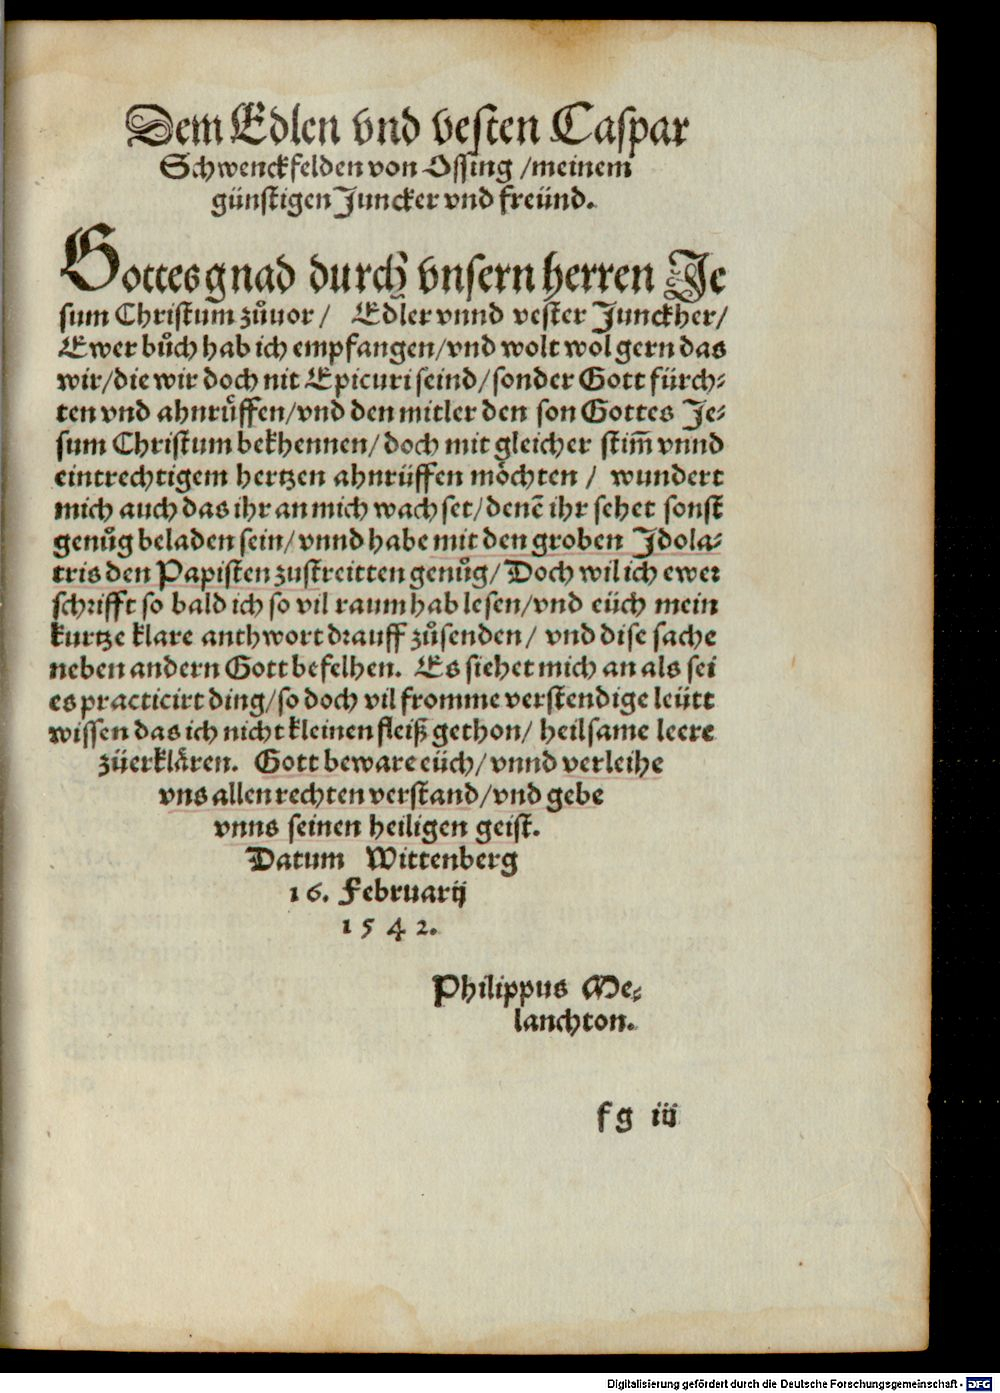 Dem Edlen vnd vesten Caspar
Schwenckfelden von Ossing /meinem
günstigen Juncker vnd freünd.
Gottes gnad durch vnsern herren Je
sum Christum zůuor / Edler vnnd vester Junckher/
Ewer bůch hab ich empfangen/vnd wolt wol gern das
wir/die wir doch nit Epicuri seind/sonder Gott fürch⸗
ten vnd ahnrůffen/vnd den mitler den son Gottes Je⸗
sum Christum bekhennen/doch mit gleicher stim̄ vnnd
eintrechtigem hertzen ahnrüffen möchten / wundert
mich auch das ihr an mich wachset/denē ihr sehet sonst
genůg beladen sein/vnnd habe mit den groben Idola⸗
tris den Papisten zustreitten genůg/Doch wil ich ewer
schrifft so bald ich so vil raum hab lesen/vnd eüch mein
kurtze klare anthwort drauff zůsenden/ vnd dise sache
neben andern Gott befelhen. Es siehet mich an als sei
es practicirt ding/so doch vil fromme verstendige leütt
wissen das ich nicht kleinen fleiß gethon/ heilsame leere
züerklären. Gott beware eüch/vnnd verleihe
vns allen rechten verstand/vnd gebe
vnns seinen heiligen geist.
Datum Wittenberg
16. Februarij
1542.
Philippus Me⸗
lanchton.
fg iij
Digitalisierung gefördert durch die Deutsche Forschungsgemeinschaft - DFG